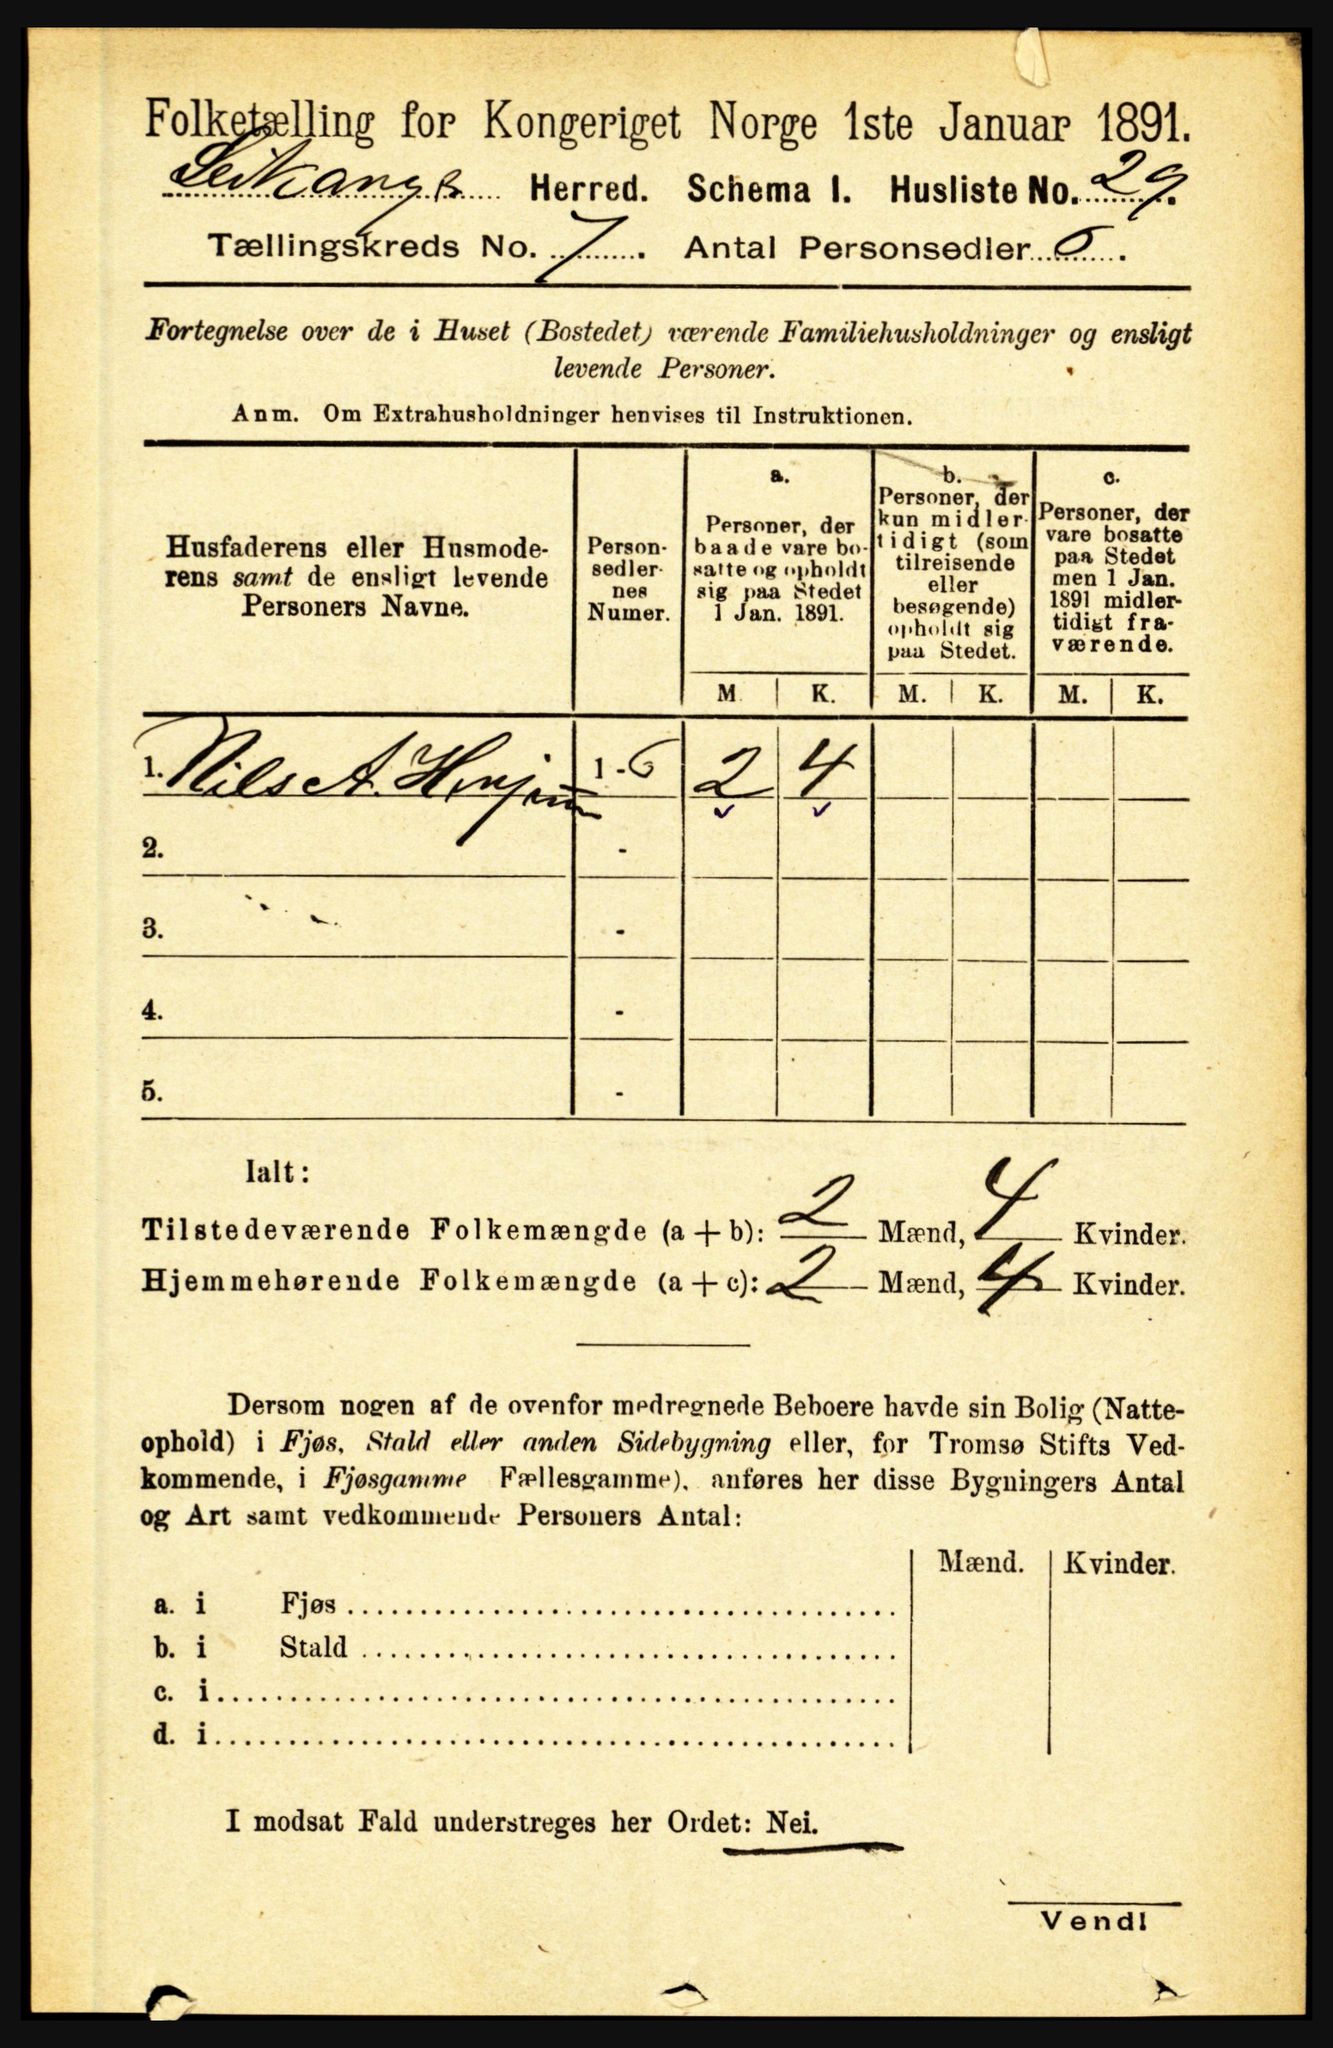 Folketælling for Kongeriget Norge 1ste Januar 1891.
Leikanger Herred. Schema 1. Husliste No. 29.
Tællingskreds No. 7. Antal Personsedler 6.
Fortegnelse over de i Huset (Bostedet) værende Familiehusholdninger og ensligt
levende Personer.
Anm. Om Extrahusholdninger henvises til Instruktionen.
Husfaderens eller Husmode-
rens samt de ensligt levende
Personers Navne.
Person-
sedler-
nes
Numer.
a.
Personer, der
baade vare bo-
satte og opholdt
sig paa Stedet
1 Jan. 1891.
b.
Personer, der
kun midler-
tidigt (som
tilreisende
eller
besøgende)
opholdt sig
paa Stedet.
c.
Personer, der
vare bosatte
paa Stedet
men 1 Jan.
1891 midler-
tidigt fra-
værende.
M. K. M. K. M. K.
1. Nils A. Henjum 1-6 2 4
2. -
3. -
4. -
5. -
Ialt:
Tilstedeværende Folkemængde (a + b): 2 Mænd, 4 Kvinder.
Hjemmehørende Folkemængde (a + c): 2 Mænd, 4 Kvinder.
Dersom nogen af de ovenfor medregnede Beboere havde sin Bolig (Natte-
ophold) i Fjøs, Stald eller anden Sidebygning eller, for Tromsø Stifts Ved-
kommende, i Fjøsgamme Fællesgamme), anføres her disse Bygningers Antal
og Art samt vedkommende Personers Antal:
Mænd. Kvinder.
a. i Fjøs
b. i Stald
c. i
d. i
I modsat Fald understreges her Ordet: Nei.
Vend!